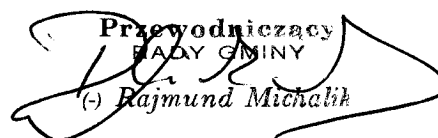 Przewodniczący
RADY GMINY
(-) Rajmund Michalik